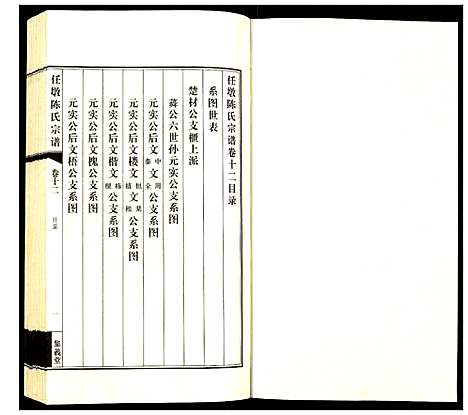 任墩陈氏宗谱卷十二目录
系图世表
楚材公支榧上派
莼公六世孙元实公系图
元实公后文中秦润全公支系图
元实公后文楼文恒植棠公支系图
元实公后文楷文公支系图
元实公后文槐公支系图
元实公后文梧公支系图
任墩陈氏宗谱
卷十二
目录
一
集义堂